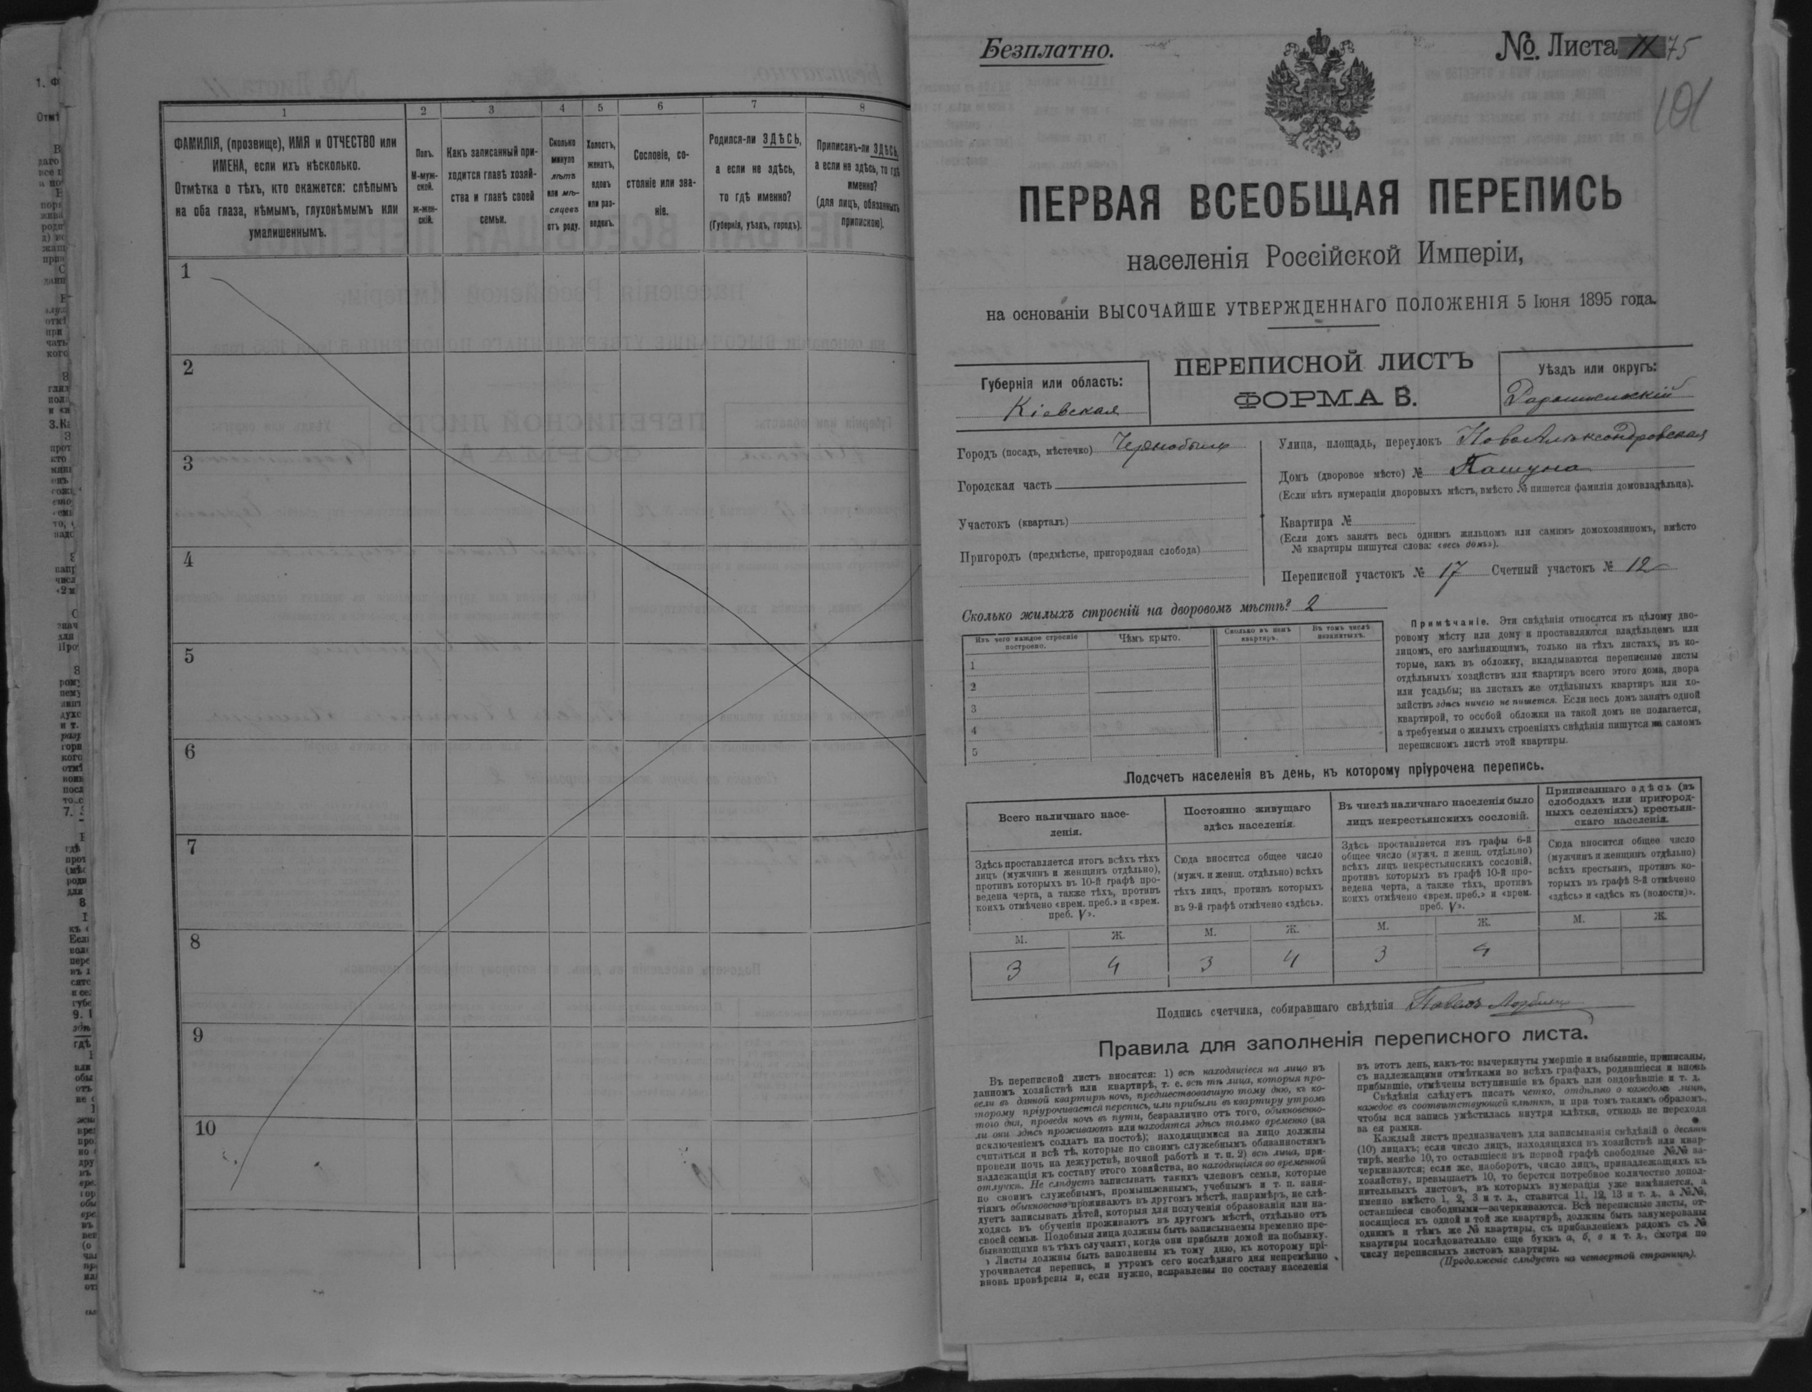 1
2
3
4
5
6
7
8
ФАМИЛІЯ, (прозвище), ИМЯ и ОТЧЕСТВО или
ИМЕНА, если ихъ нѣсколько.
Отмѣтка о тѣхъ, кто окажется: слѣпымъ
на оба глаза, нѣмымъ, глухонѣмымъ или
умалишеннымъ.
Полъ.
М-муж-
ской.
ж-жен-
скій.
Какъ записанный при-
ходится главѣ хозяй-
ства и главѣ своей
семьи.
Сколько
минуло
лѣтъ
или мѣ-
сяцевъ
отъ роду.
Холостъ,
женатъ,
вдовъ
или раз-
веденъ.
Сословіе, со-
стояніе или зва-
ніе.
Родился-ли ЗДѢСЬ,
а если не здѣсь,
то гдѣ именно?
(Губернія, уѣздъ, городъ).
Приписанъ-ли ЗДѢСЬ,
а если не здѣсь, то гдѣ
именно?
(для лицъ, обязанныхъ
припискою).
1
2
3
4
5
6
7
8
9
10
Безплатно.
№ Листа 75
101
ПЕРВАЯ ВСЕОБЩАЯ ПЕРЕПИСЬ
населенія Россійской Имперіи,
на основаніи ВЫСОЧАЙШЕ УТВЕРЖДЕННАГО ПОЛОЖЕНІЯ 5 Іюня 1895 года.
Губернія или область:
Кіевская
ПЕРЕПИСНОЙ ЛИСТЪ
ФОРМА В.
Уѣздъ или округъ:
Радомысльскій
Городъ (посадъ, мѣстечко) Чернобыль
Городская часть
Участокъ (кварталъ)
Пригородъ (предмѣстье, пригородная слобода)
Улица, площадь, переулокъ НовоАлександровская
Домъ (дворовое мѣсто) № Пашуна
(Если нѣтъ нумераціи дворовыхъ мѣстъ, вмѣсто № пишется фамилія домовладѣльца).
Квартира №
(Если домъ занятъ весь однимъ жильцомъ или самимъ домохозяиномъ, вмѣсто
№ квартиры пишутся слова: «весь домъ»).
Переписной участокъ № 17 Счетный участокъ № 12
Сколько жилыхъ строеній на дворовомъ мѣстѣ? 2
Изъ чего каждое строеніе
построено.
Чѣмъ крыто.
Сколько въ немъ
квартиръ.
Въ томъ числѣ
незанятыхъ.
1
2
3
4
5
Примѣчаніе. Эти свѣдѣнія относятся къ цѣлому дво-
ровому мѣсту или дому и проставляются владѣльцемъ или
лицомъ, его замѣняющимъ, только на тѣхъ листахъ, въ ко-
торые, какъ въ обложку, вкладываются переписные листы
отдѣльныхъ хозяйствъ или квартиръ всего этого дома, двора
или усадьбы; на листахъ же отдѣльныхъ квартиръ или хо-
зяйствъ здѣсь ничего не пишется. Если весь домъ занятъ одной
квартирой, то особой обложки на такой домъ не полагается,
а требуемыя о жилыхъ строеніяхъ свѣдѣнія пишутся на самомъ
переписномъ листѣ этой квартиры.
Подсчетъ населенія въ день, къ которому пріурочена перепись.
Всего наличнаго насе-
ленія.
Постоянно живущаго
здѣсь населенія.
Въ числѣ наличнаго населенія было
лицъ некрестьянскихъ сословій.
Приписаннаго здѣсь (въ
слободахъ или пригород-
ныхъ селеніяхъ) крестьян-
скаго населенія.
Здѣсь проставляется итогъ всѣхъ тѣхъ
лицъ (мужчинъ и женщинъ отдѣльно),
противъ которыхъ въ 10-й графѣ про-
ведена черта, а также тѣхъ, противъ
коихъ отмѣчено «врем. преб.» и «врем.
преб. V».
Сюда вносится общее число
(мужч. и женщ. отдѣльно) всѣхъ
тѣхъ лицъ, противъ которыхъ
въ 9-й графѣ отмѣчено «здѣсь».
Здѣсь проставляется изъ графы 6-й
общее число (мужч. и женщ. отдѣльно)
всѣхъ лицъ некрестьянскихъ сословій,
противъ которыхъ въ графѣ 10-й про-
ведена черта, а также тѣхъ, противъ
коихъ отмѣчено «врем. преб.» и «врем.
преб. V».
Сюда вносится общее число
(мужчинъ и женщинъ отдѣльно)
всѣхъ крестьянъ, противъ ко-
торыхъ въ графѣ 8-й отмѣчено
«здѣсь» и «здѣсь къ (волости)».
М. Ж. М. Ж. М. Ж. М. Ж.
3 4 3 4 3 4
Подпись счетчика, собиравшаго свѣдѣнія Павелъ
Правила для заполненія переписного листа.
Въ переписной листъ вносятся: 1) всѣ находящіеся на лицо въ
данномъ хозяйствѣ или квартирѣ, т. е. всѣ тѣ лица, которыя про-
вели въ данной квартирѣ ночь, предшествовавшую тому дню, къ ко-
торому пріурочивается перепись, или прибыли въ квартиру утромъ
того дня, проведя ночь въ пути, безразлично отъ того, обыкновенно-
ли они здѣсь проживаютъ или находятся здѣсь только временно (за
исключеніемъ солдатъ на постоѣ); находящимися на лицо должны
считаться и всѣ тѣ, которые по своимъ служебнымъ обязанностямъ
провели ночь на дежурствѣ, ночной работѣ и т. п. 2) всѣ лица, при-
надлежащія къ составу этого хозяйства, но находящіяся во временной
отлучкѣ. Не слѣдуетъ записывать такихъ членовъ семьи, которые
по своимъ служебнымъ, промышленнымъ, учебнымъ и т. п. заня-
тіямъ обыкновенно проживаютъ въ другомъ мѣстѣ, напримѣръ, не слѣ-
дуетъ записывать дѣтей, которыя для полученія образованія или на-
ходясь въ обученіи проживаютъ въ другомъ мѣстѣ, отдѣльно отъ
своей семьи. Подобныя лица должны быть записываемы временно пре-
бывающими въ тѣхъ случаяхъ, когда они прибыли домой на побывку.
Листы должны быть заполнены къ тому дню, къ которому прі-
урочивается перепись, и утромъ сего послѣдняго дня непремѣнно
вновь провѣрены и, если нужно, исправлены по составу населенія
въ этотъ день, какъ-то: вычеркнуты умершіе и выбывшіе, приписаны,
съ надлежащими отмѣтками во всѣхъ графахъ, родившіеся и вновь
прибывшіе, отмѣчены вступившіе въ бракъ или овдовѣвшіе и т. д.
Свѣдѣнія слѣдуетъ писать четко, отдѣльно о каждомъ лицѣ,
каждое въ соотвѣтствующей клѣткѣ, и при томъ такимъ образомъ,
чтобы вся запись умѣстилась внутри клѣтки, отнюдь не переходя
за ея рамки.
Каждый листъ предназначенъ для записыванія свѣдѣній о десяти
(10) лицахъ; если число лицъ, находящихся въ хозяйствѣ или квар-
тирѣ, менѣе 10, то оставшіеся въ первой графѣ свободные №№ за-
черкиваются; если же, наоборотъ, число лицъ, принадлежащихъ къ
хозяйству, превышаетъ 10, то берется потребное количество допол-
нительныхъ листовъ, въ которыхъ нумерація уже измѣняется, а
именно вмѣсто 1, 2, 3 и т. д., ставятся 11, 12, 13 и т. д., а №№,
оставшіеся свободными—зачеркиваются. Всѣ переписные листы, от-
носящіеся къ одной и той же квартирѣ, должны быть занумерованы
однимъ и тѣмъ же № квартиры, съ прибавленіемъ рядомъ съ №
квартиры послѣдовательно еще буквъ а, б, в и т. д., смотря по
числу переписныхъ листовъ квартиры.
(Продолженіе слѣдуетъ на четвертой страницѣ).